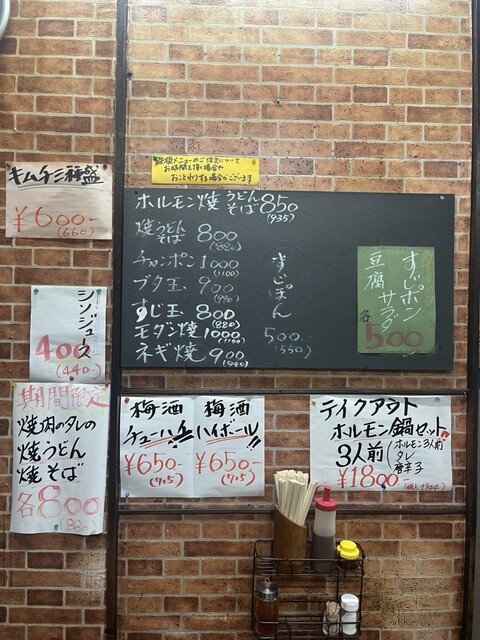 鉄板メニューのご注文について
お時間を頂く場合や
おことわりする場合がございます
キムチ三種盛
¥600-
(660)
シソジュース
400
(440-)
期間限定
焼肉のタレの
焼うどん
焼そば
各800
(880)
ホルモン焼うどん
そば850
(935)
焼うどん
そば 800
(880)
チャンポン 1000
(1100)
ブタ玉 900
(990)
すじ玉 800
(880)
モダン焼 1000
(1100)
ネギ焼 900
(990)
すじぽん
500-
(550)
すじポン
豆腐サラダ
各500
梅酒
チューハイ!!
¥650-
(715)
梅酒
ハイボール!!
¥650-
(715)
テイクアウト
ホルモン鍋セット!
3人前
ホルモン3人前
タレ
唐辛子
¥1800-